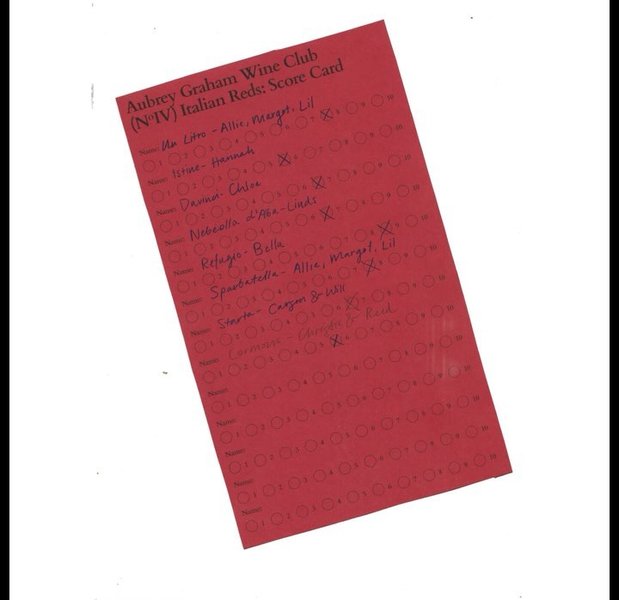 Aubrey Graham Wine Club
(NºIV) Italian Reds: Score Card
Name: Un Litro - Allie, Margot, Lil
1 2 3 4 5 6 7 8 9 10
Name: Istine - Hannah
1 2 3 4 5 6 7 8 9 10
Name: Davinci - Chloe
1 2 3 4 5 6 7 8 9 10
Name: d'Alba - Linds
1 2 3 4 5 6 7 8 9 10
Name: Refugio - Bella
1 2 3 4 5 6 7 8 9 10
Name: Sparbatella - Allie, Margot, Lil
1 2 3 4 5 6 7 8 9 10
Name: Starta - Carson & Will
1 2 3 4 5 6 7 8 9 10
Name: Cormons - & Reid
1 2 3 4 5 6 7 8 9 10
Name:
1 2 3 4 5 6 7 8 9 10
Name:
1 2 3 4 5 6 7 8 9 10
Name:
1 2 3 4 5 6 7 8 9 10
Name:
1 2 3 4 5 6 7 8 9 10
Name:
1 2 3 4 5 6 7 8 9 10